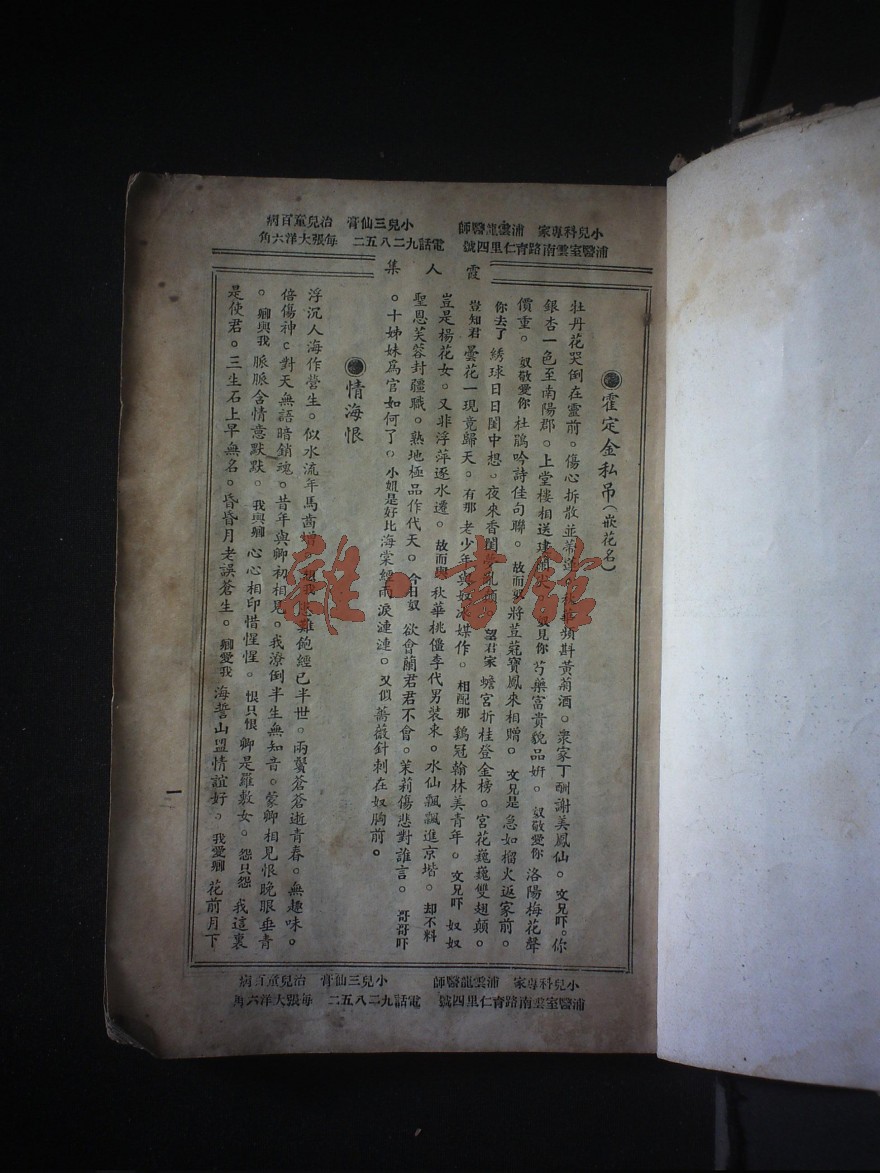 小兒科專家 浦雲龍醫師 小兒三仙膏 治兒童百病
浦醫室雲南路育仁里四號 電話九二八五二 每張大洋六角
霞人集
霍定金私吊(嵌花名)
牡丹花哭倒在靈前。傷心拆散並蒂蓮。 蘋斟黃菊酒。衆家丁酬謝美鳳仙。文兄吓。你
銀杏一色至南陽郡。上堂樓相送 見你芍藥富貴貌品姸。奴敬愛你洛陽梅花聲
價重。奴敬愛你杜鵑吟詩佳句聯。故而 將荳蔻寶鳳來相贈。文兄是急如榴火返家前。
你去了綉球日日閨中想。夜來香閨 望君家蟾宮折桂登金榜。宮花巍巍雙翅顛。
豈知君曇花一現竟歸天。有那老少年與奴 媒作。相配那鷄冠翰林美青年。文兄吓奴奴
豈是楊花女。又非浮萍逐水遷。故而學秋華桃僵李代男裝來。水仙飄飄進京堦。却不料
聖恩芙蓉封疆職。熟地極品作代天。今日奴欲會蘭君君不會。茉莉傷悲對誰言。哥哥吓
。十姊妹爲官如何了。小姐是好比海棠經雨淚漣漣。又似薔薇針刺在奴胸前。
情海恨
浮沉人海作營生。似水流年馬齒 難飽經已半世。兩鬢蒼蒼逝青春。無趣味。
倍傷神。對天無語暗銷魂。昔年與卿初相見。我潦倒半生無知音。蒙卿相見恨晚眼垂青
。卿與我脈脈含情意默默。我與卿心心相印惜惺惺。恨只恨卿是羅敷女。怨只怨我這裏
是使君。三生石上早無名。昏昏月老誤蒼生。卿愛我海誓山盟情誼好。我愛卿花前月下
一
小兒科專家 浦雲龍醫師 小兒三仙膏 治兒童百病
浦醫室雲南路育仁里四號 電話九二八五二 每張大洋六角
雜·書館